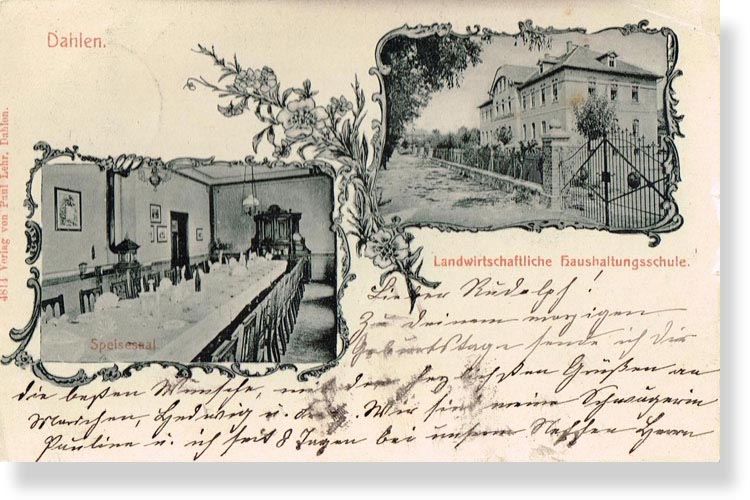 Dahlen.
4814 Verlag von Paul Lehr, Dahlen.
Landwirtschaftliche Haushaltungsschule.
Speisesaal
Lieber Rudolph!
Zu Deinem morgigen
Geburtstage sende ich dir
die besten Wünsche, mit den herzlichsten Grüßen an
Mariechen, Hedwig u. Wir sind meine Schwägerin
Pauline u. ich seit 8 Tagen bei unserm Neffen Herrn